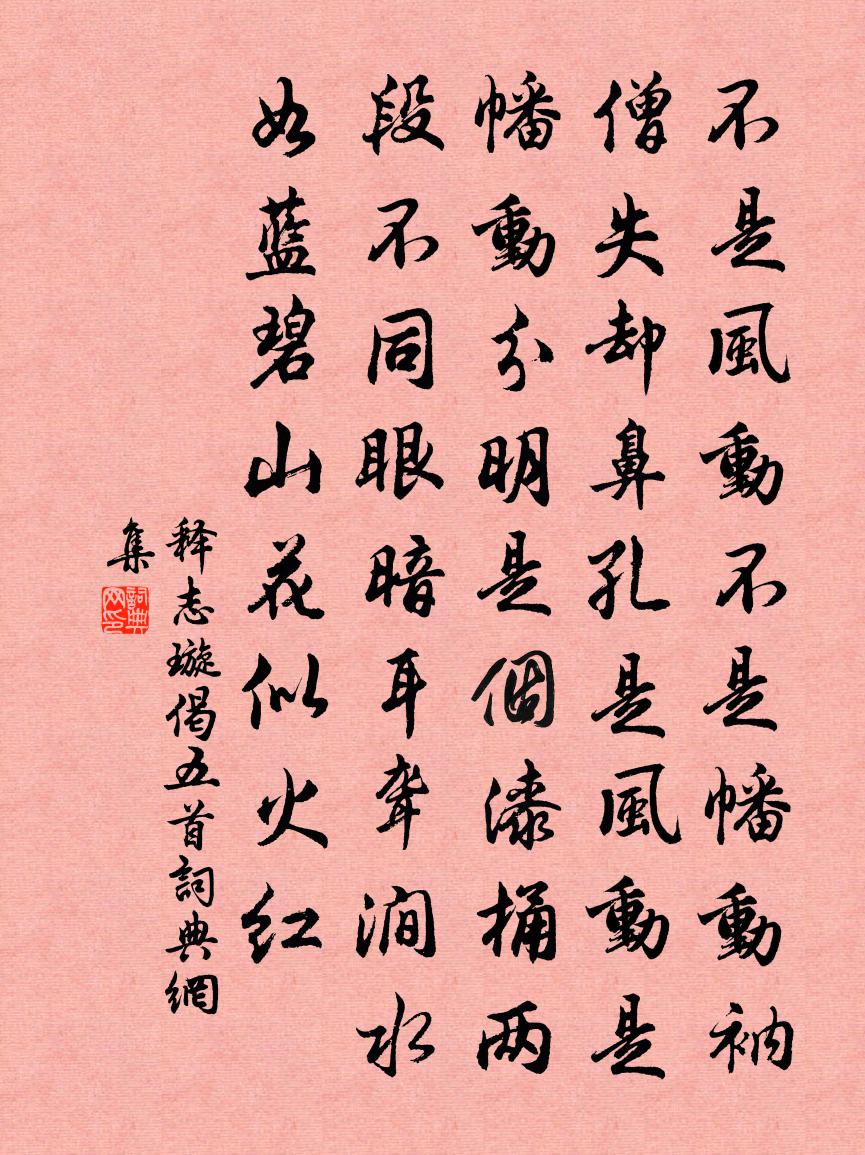 不是風動不是幡動衲
僧失却鼻孔是風動是
幡動分明是個漆桶两
段不同眼暗耳聋澗水
如藍碧山花似火红
释志璇偈五首詞典網
集
詞典网印